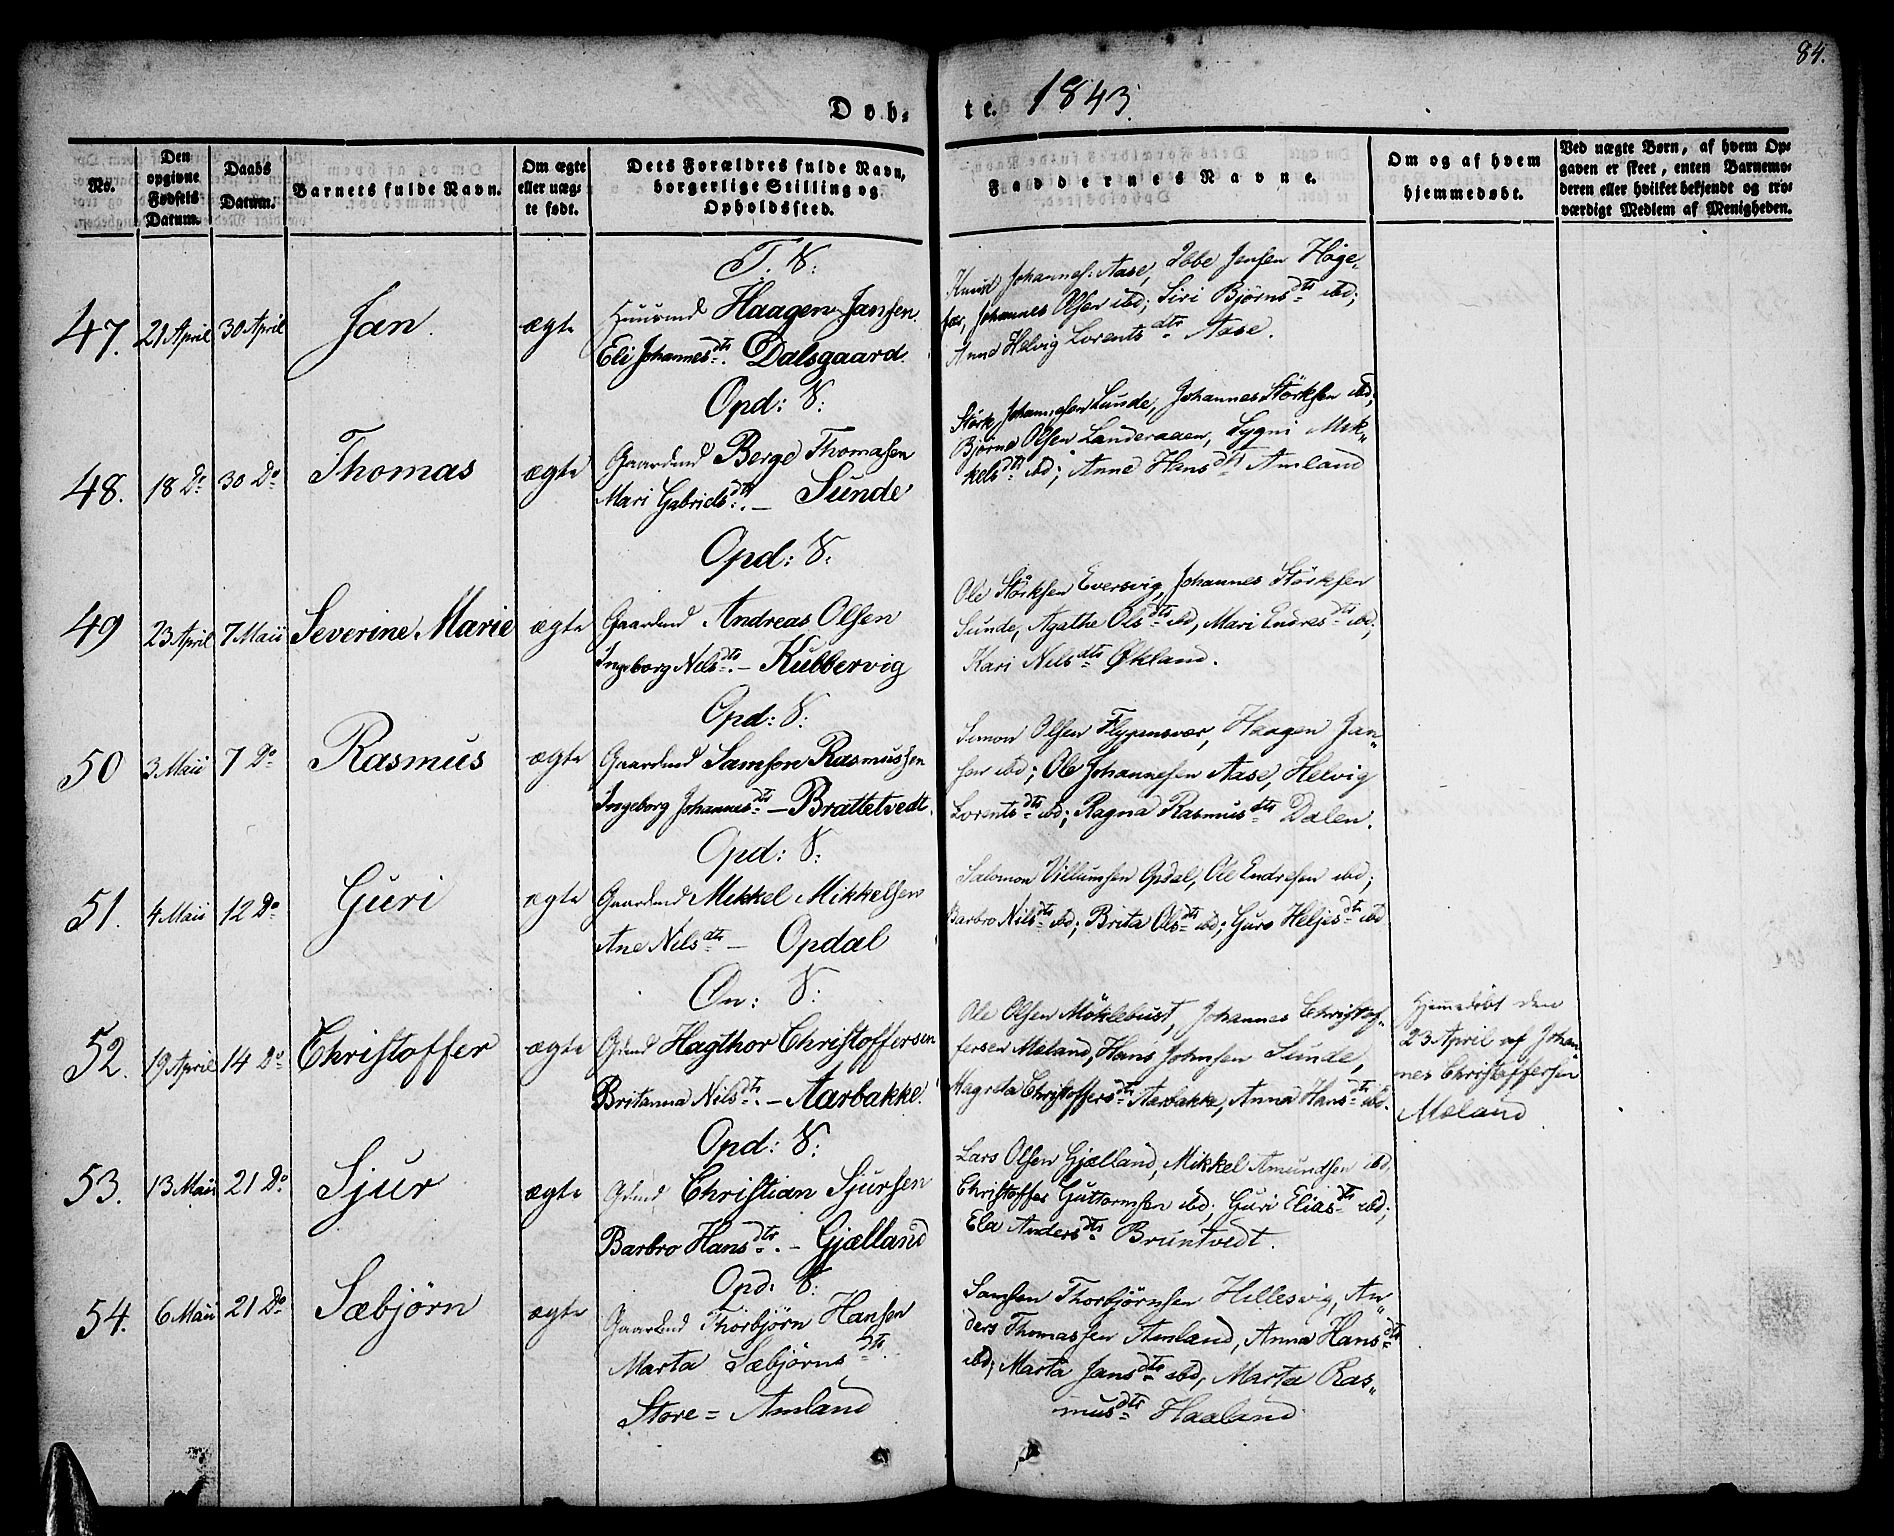 84.
Døb- te. 1843.
No.
Den opgivne Fødsels Datum.
Daabs Datum.
Barnets fulde Navn.
Om ægte eller uægte født.
Dets Forældres fulde Navn, borgerlige Stilling og Opholdssted.
Faddernes Navne.
Om og af hvem hjemmedøbt.
Ved uægte Børn, af hvem Opgaven er skeet, enten Barnemoderen eller hvilket bekjendt og troværdigt Medlem af Menigheden.
T. S:
47. 21 April 30 April Jan. ægte
Huusmd Haagen Jansen.
Eli Johannesdtr. Dalsgaard.
Knud Johannes: Aase, Ebbe Jensen Høge-
fær, Johannes Olsen ibd; Siri Bjørnsdtr ibd;
Anna Helvig Lorentsdtr Aase.
Opd: S:
48. 18 Do 30 Do Thomas ægte
Gaardmd Berge Thomasen
Mari Gabrielsdtr. – Sunde
Störk Johannesen Sunde, Johannes Störksen ibd;
Bjørne Olsen Landeraaen, Sygni Mik-
kelsdtr ibd; Anne Hansdtr Amland
Opd: S:
49 23 April 7 Maii Severine Marie ægte
Gaardmd Andreas Olsen
Ingeborg Nilsdtr. – Kubbervig
Ole Störksen Eversvig, Johannes Störksen
Sunde, Agathe Olsdtr ibd, Mari Endresdtr ibd;
Kari Nilsdtr Økland.
Opd: S:
50 3 Maii 7 Do Rasmus ægte
Gaardmd Samson Rasmussen
Ingeborg Johannesdtr – Brattetvedt.
Simon Olsen Flypensvær, Haagen Jan-
sen ibd; Ole Johannesen Aase, Helvig
Lorentsdtr ibd; Ragna Rasmusdtr Dalen.
Opd: S:
51. 4 Maii 12 Do Guri ægte
Gaardmd Mikkel Mikkelsen
Ane Nilsdtr – Opdal
Salomon Villumsen Opdal, Ole Endresen ibd;
Barbro Nilsdtr ibd; Brita Olsdtr ibd; Guro Heljesdtr ibd
Øn: S:
52. 19 April 14 Do Christoffer ægte
Gdmd Hagthor Christoffersen
Britanna Nilsdtr. – Aarbakke.
Ole Olsen Möklebust, Johannes Christof-
fersen Mæland, Hans Johnsen Sunde,
Magreta Christoffersdtr Aarbakke, Anna Hansdtr ibd.
Hjemedøbt den
23 April af Johan-
nes Christoffersen
Mæland
Opd: S:
53. 13 Maii 21 Do Sjur ægte
Gdmd Christian Sjursen
Barbro Hansdtr. – Gjælland
Lars Olsen Gjælland, Mikkel Amundsen ibd,
Christoffer Guttormsen ibd; Guri Eliasdtr ibd;
Ela Andersdtr Bruntvedt.
Opd. S:
54. 6 Maii 21 Do Sæbjørn ægte
Gaardmd Thorbjörn Hansen
Marta Sæbjörnsdtr.
Store = Amland
Samsen Thorbjörnsen Hillesvig, An-
ders Thomassen Amland, Anna Hansdtr
ibd; Marta Jansdtr ibd, Marta Ras-
musdtr Haaland.